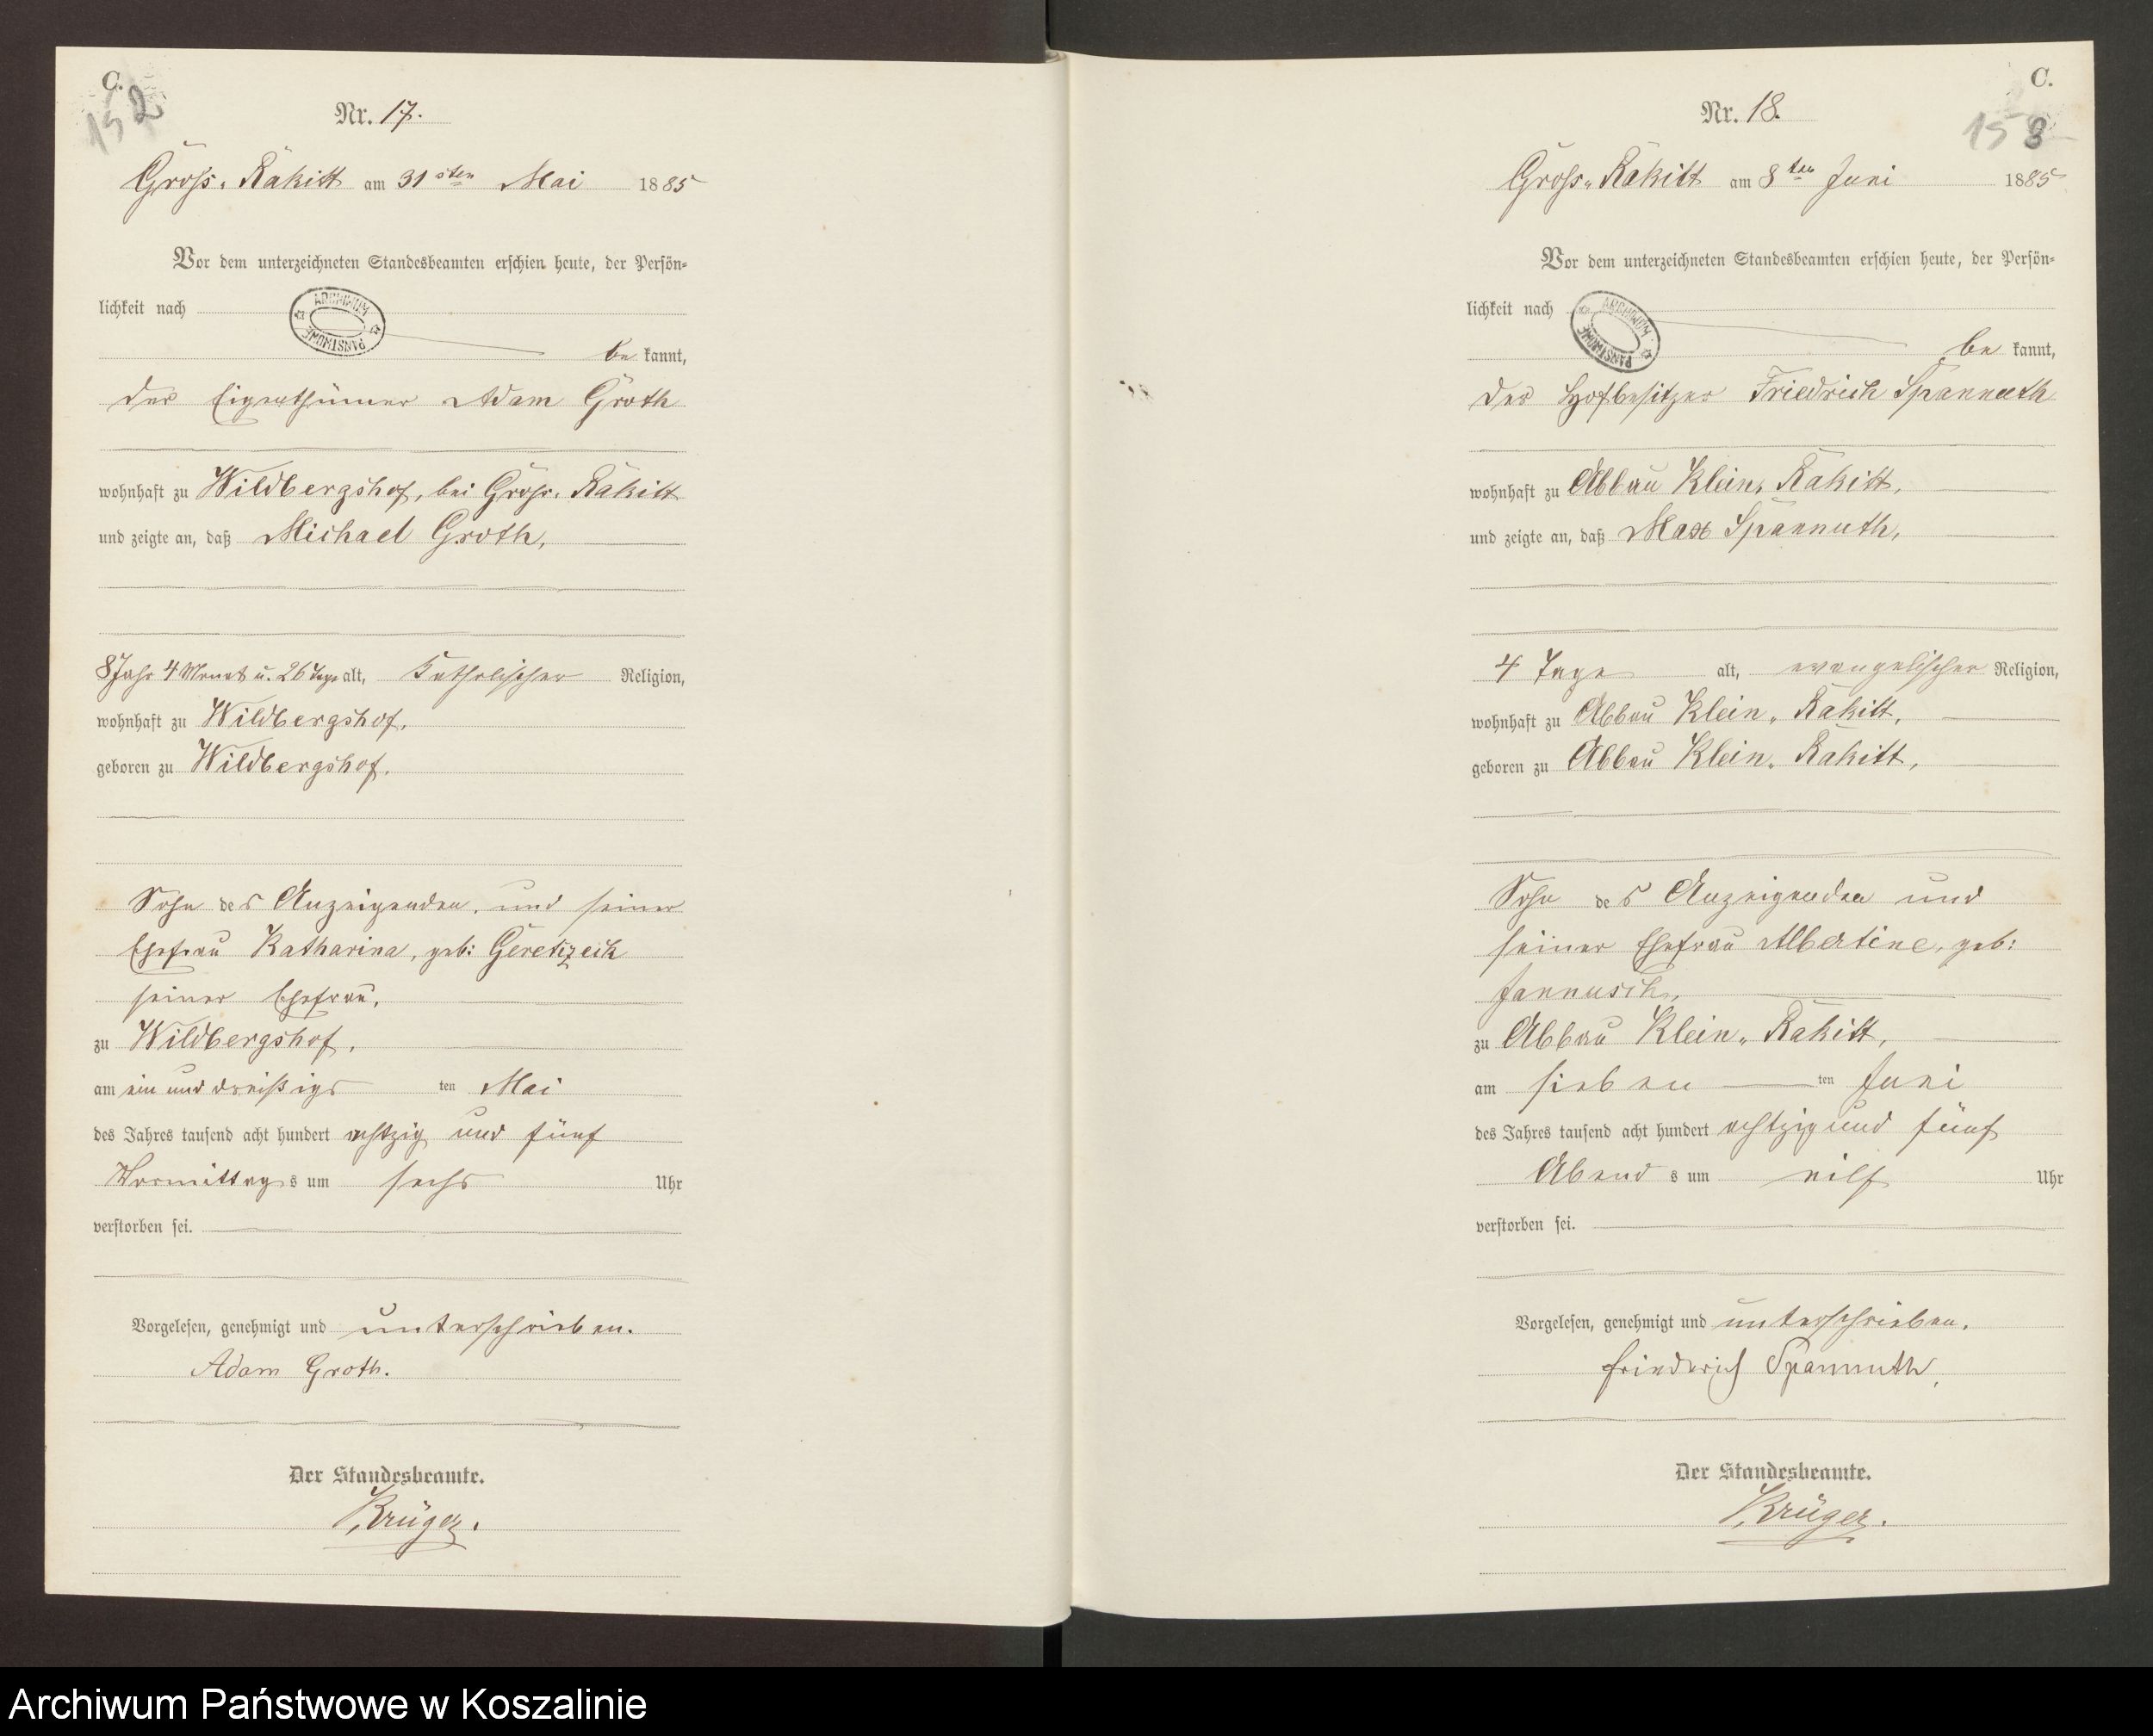 C.
152
Nr. 17.
Gross. Rakitt am 31sten Mai 1885
Vor dem unterzeichneten Standesbeamten erschien heute, der Persön-
lichkeit nach
ARCHIWUM PAŃSTWOWE
be kannt,
der Eigenthümer Adam Groth
wohnhaft zu Wildbergshof, bei Gross. Rakitt
und zeigte an, daß Michael Groth,
8 Jahr 4 Monat u. 26 Tage alt, Katholischer Religion,
wohnhaft zu Wildbergshof,
geboren zu Wildbergshof,
Sohn des Anzeigenden, und seiner
Ehefrau Katharina, geb:
seiner Ehefrau,
zu Wildbergshof,
am ein und dreißigs ten Mai
des Jahres tausend acht hundert achtzig und fünf
Vormittag s um sechs Uhr
verstorben sei.
Vorgelesen, genehmigt und unterschrieben.
Adam Groth.
Der Standesbeamte.
Krüger.
C.
153
Nr. 18.
Gross. Rakitt am 8ten Juni 1885
Vor dem unterzeichneten Standesbeamten erschien heute, der Persön-
lichkeit nach
ARCHIWUM PAŃSTWOWE
be kannt,
der Hofbesitzer Friedrich Spannuth
wohnhaft zu Abbau Klein. Rakitt,
und zeigte an, daß Max Spannuth,
4 Tage alt, evangelischer Religion,
wohnhaft zu Abbau Klein. Rakitt,
geboren zu Abbau Klein. Rakitt,
Sohn des Anzeigenden und
seiner Ehefrau Albertine, geb:
Jannusch,
zu Abbau Klein. Rakitt,
am sieben ten Juni
des Jahres tausend acht hundert achtzig und fünf
Abend s um eilf Uhr
verstorben sei.
Vorgelesen, genehmigt und unterschrieben.
Friederich Spannuth,
Der Standesbeamte.
Krüger.
Archiwum Państwowe w Koszalinie